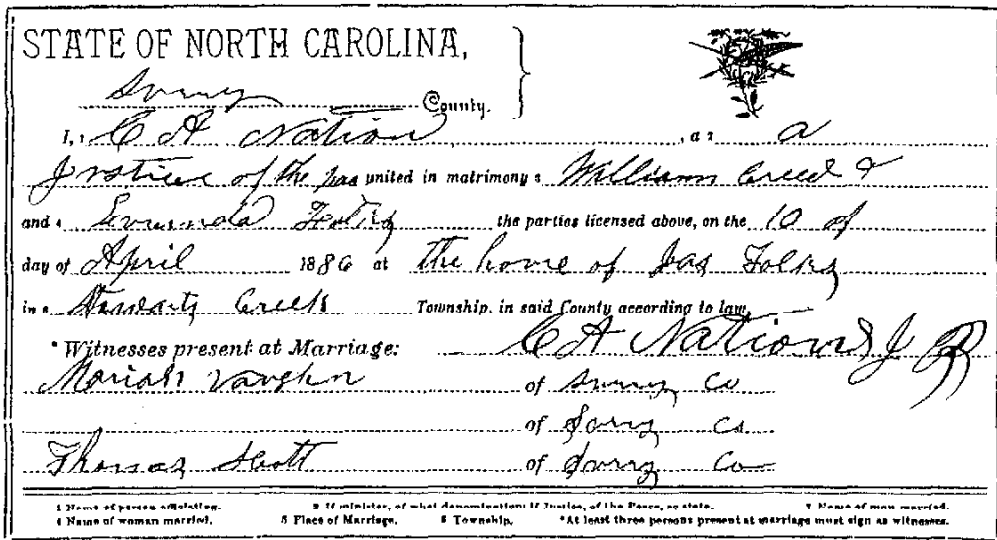 STATE OF NORTH CAROLINA,
Surry County.
I, 1 C A Nation, a 2 a
Justice of the pas united in matrimony 3 William Creed &
and 4 Folks the parties licensed above, on the 10 of
day of April 1886 at the home of Jas Folks
in 6 Stewarts Creek Township, in said County according to law.
*Witnesses present at Marriage: C A Nation J P
Moriah Vaughn of Surry Co
of Surry Co
Thomas Scott of Surry Co
1 Name of person officiating. 2 If minister, of what denomination; if Justice, of the Peace, so state. 3 Name of man married.
4 Name of woman married. 5 Place of Marriage. 6 Township. *At least three persons present at marriage must sign as witnesses.